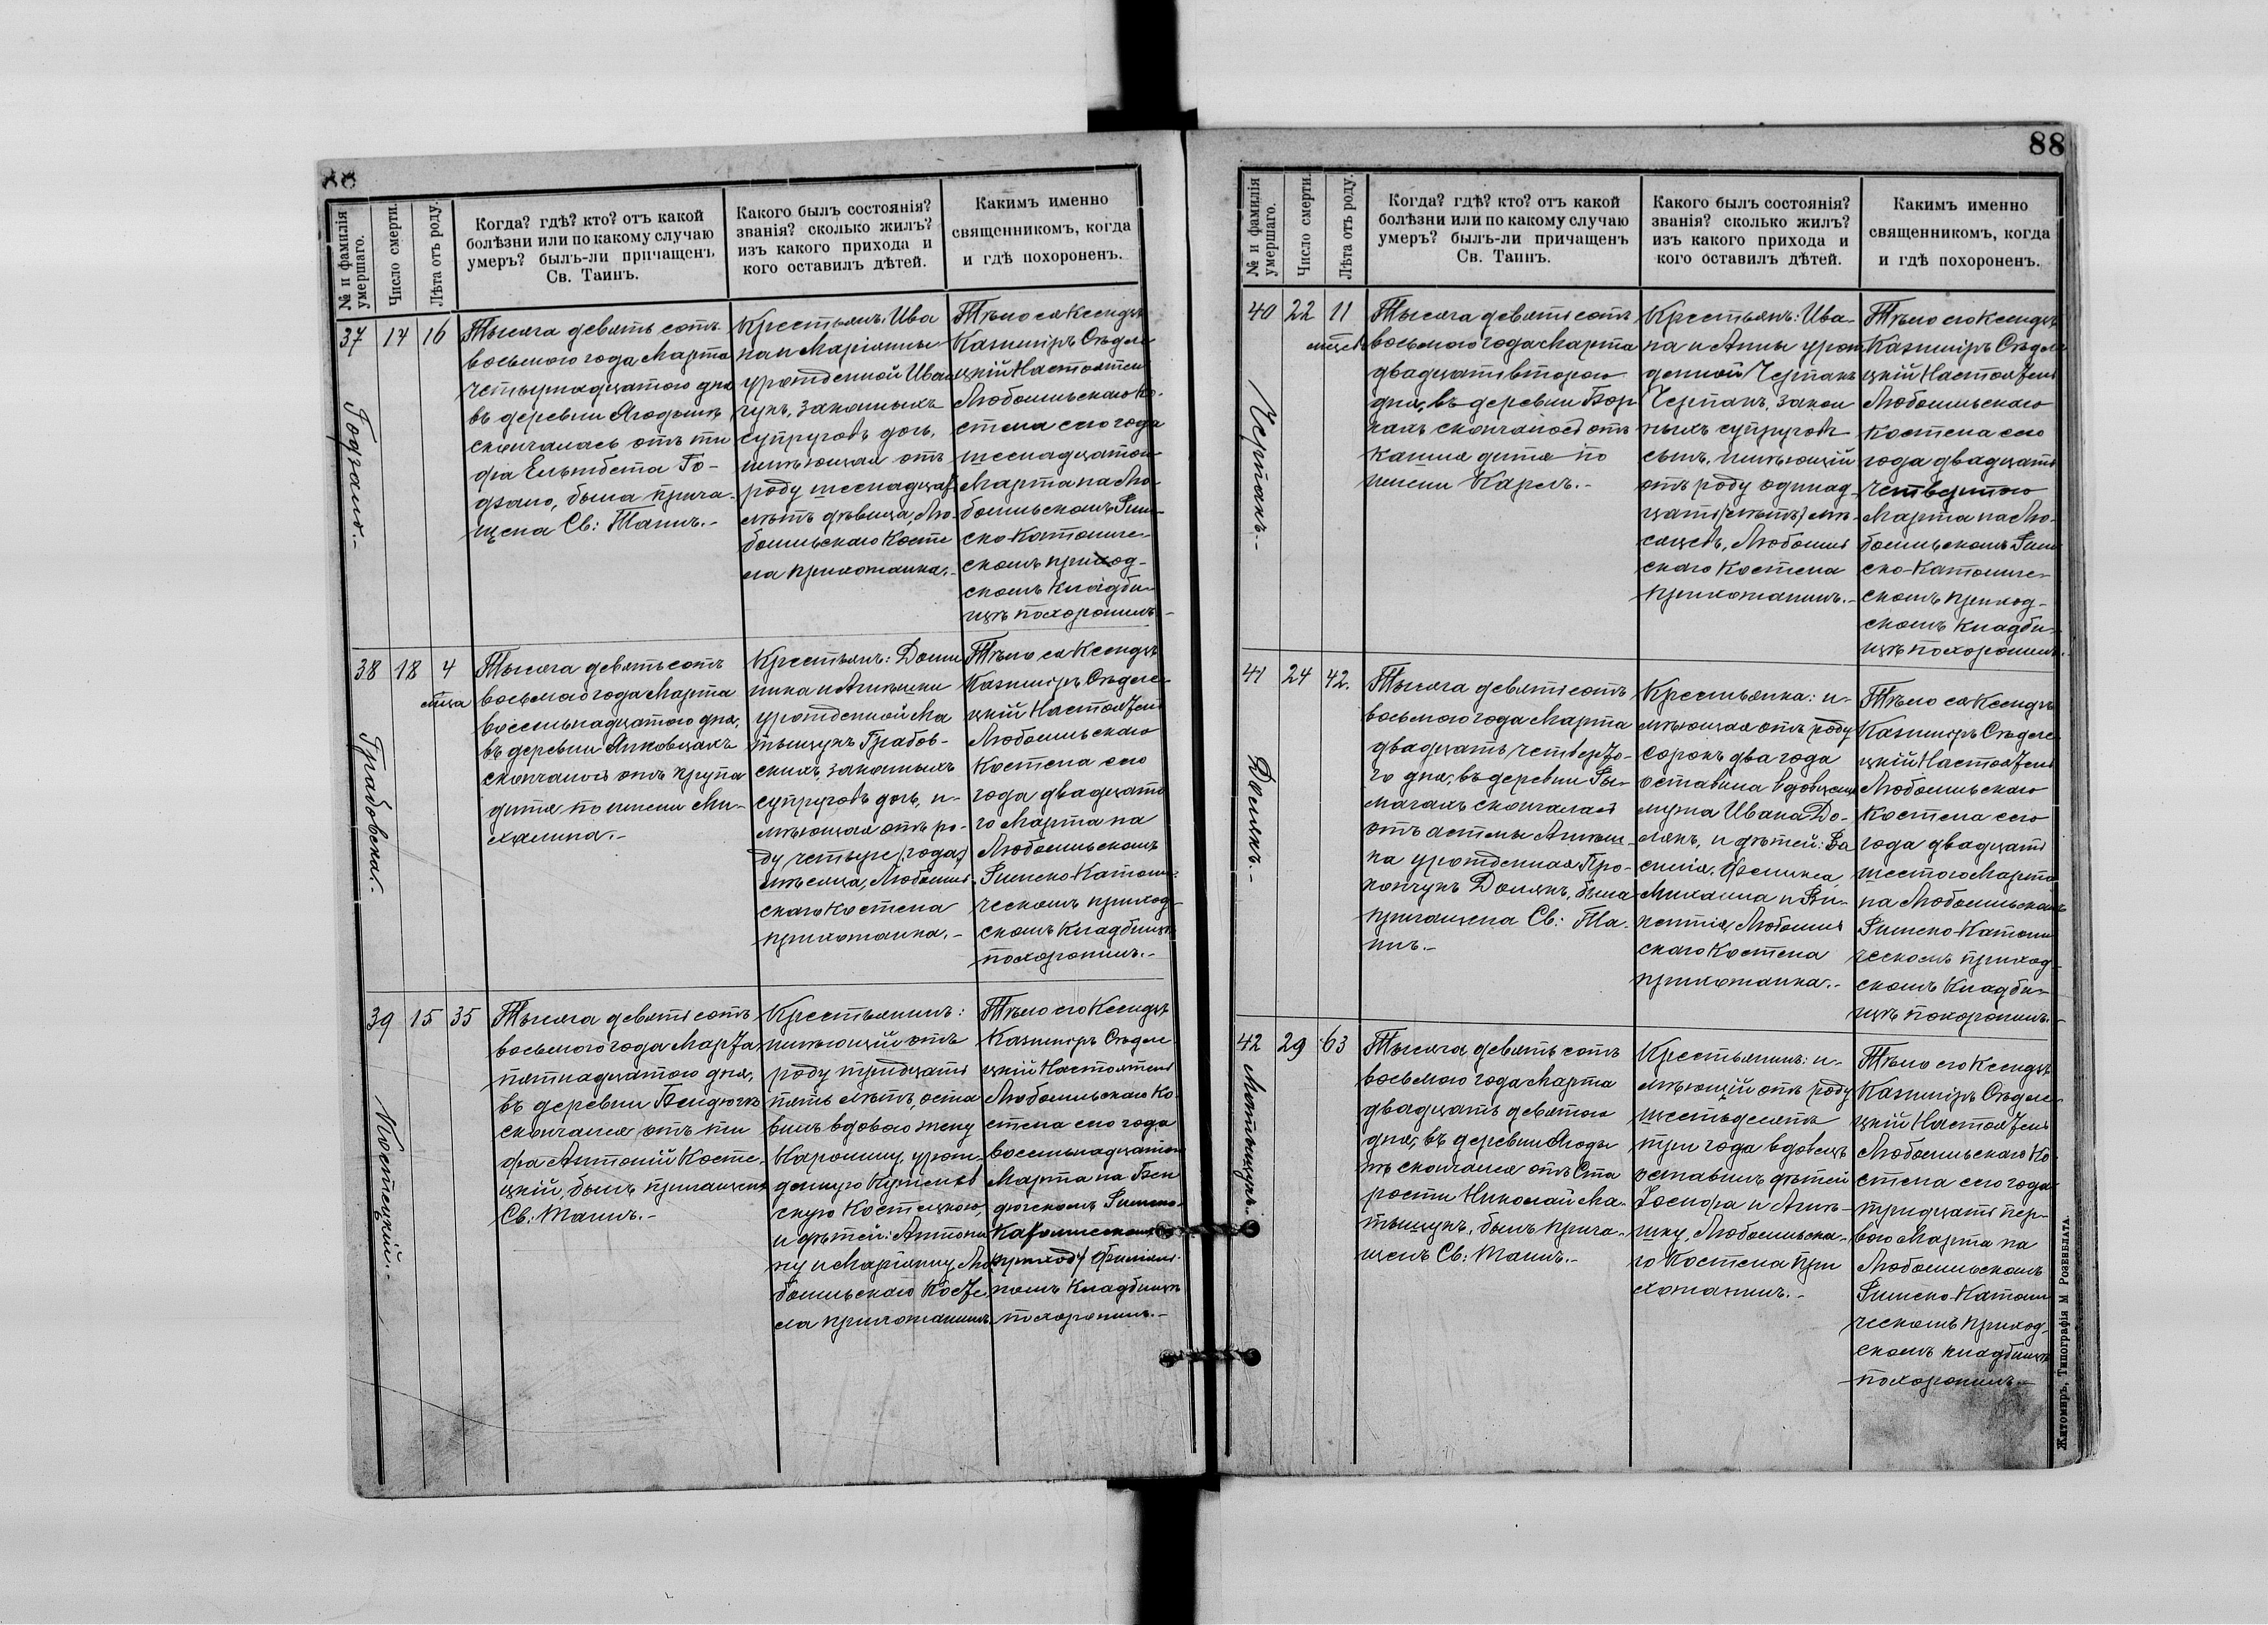 88
№ и фамилія умершаго.
Число смерти.
Лѣта отъ роду.
Когда? гдѣ? кто? отъ какой
болѣзни или по какому случаю
умеръ? былъ-ли причащенъ
Св. Таинъ.
Какого былъ состоянія?
званія? сколько жилъ?
изъ какого прихода и
кого оставилъ дѣтей.
Какимъ именно
священникомъ, когда
и гдѣ похороненъ.
37
Годзало.-
14
16
Тысяча девять сотъ
восьмого года Марта
четырнадцатого дня
въ деревни Ягодынѣ
скончалась отъ ти
фа Ельжбета Го-
дзало, была прича-
щена Св: Таинъ.-
Крестьянъ: Ива
на и Маріянны
урожденной Иван
чукъ, законныхъ
супруговъ дочь,
имѣющая отъ
роду шеснадцать
лѣтъ дѣвица, Лю-
бомльскаго Косте
ла прихожанка.-
Тѣло ея Ксендзъ
Казиміръ Сѣдле
цкій Настоятель
Любомльскаго Ко-
стела сего года
шеснадцатого
Марта на Лю-
бомльскомъ Рим-
ско-Католиче-
скомъ приход-
скомъ кладби-
щѣ похоронилъ.-
38
Грабовска.-
18
4
мѣсца
Тысяча девять сотъ
восьмого года Марта
восемьнадцатого дня,
въ деревни Янковцахъ
скончалось отъ крупа
дитя по имени Ми-
халина.-
Крестьянъ: Доми
ника и Агнѣшки
урожденной Ма
тыщукъ Грабов-
скихъ, законныхъ
супруговъ дочь, и-
мѣющая отъ ро-
ду четыре (года)
мѣсяца, Любомль-
скаго Костела
прихожанка.-
Тѣло ея Ксендзъ
Казиміръ Сѣдле-
цкій Настоятель
Любомльскаго
Костела сего
года двадцато
го Марта на
Любомльскомъ
Римско Католи-
ческомъ приход-
скомъ кладбищѣ
похоронилъ.-
39
Костецкій.-
15
35
Тысяча девять сотъ
восьмого года Марта
пятнадцатого дня,
въ деревни Бендюгѣ
скончался отъ ти
фа Антоній Косте-
цкій, былъ причащенъ
Св: Таинъ.-
Крестьянинъ:
имѣющій отъ
роду тридцать
пять лѣтъ, оста
вилъ вдовою жену
Каролину, урож-
денную
скую Костецкою,
и дѣтей: Антони
ну и Маріянну, Лю
бомльскаго Косте
ла прихожанинъ
Тѣло его Ксендзъ
Казиміръ Сѣдле
цкій Настоятель
Любомльскаго Ко-
стела сего года
восемьнадцатого
Марта на Бен
дюгскомъ Римско-
Католическомъ
приходу филіаль-
номъ кладбищѣ
похоронилъ.-
88
№ и фамилія умершаго.
Число смерти.
Лѣта отъ роду.
Когда? гдѣ? кто? отъ какой
болѣзни или по какому случаю
умеръ? былъ-ли причащенъ
Св. Таинъ.
Какого былъ состоянія?
званія? сколько жилъ?
изъ какого прихода и
кого оставилъ дѣтей.
Какимъ именно
священникомъ, когда
и гдѣ похороненъ.
40
Черпакъ.-
22
11
мѣсцевъ
Тысяча девять сотъ
восьмого года Марта
двадцать второго
дня, въ деревни Бор
кахъ скончалось отъ
кашля дитя по
имени Карелъ.-
Крестьянъ: Ива-
на и Анны урож
денной Черпакъ
Черпакъ, закон
ныхъ супруговъ
сынъ, имѣющій
отъ роду одинад-
цать (лѣтъ) мѣ-
сяцевъ, Любомль
скаго Костела
прихожанинъ.-
Тѣло его Ксендзъ
Казиміръ Сѣдле
цкій Настоятель
Любомльскаго
Костела сего
года двадцать
четвертого
Марта на Лю-
бомльскомъ Рим
ско-Католиче-
скомъ приход-
скомъ кладби-
щѣ похоронилъ.
41
Долякъ.-
24
42.
Тысяча девять сотъ
восьмого года Марта
двадцать четверто-
го дня, въ деревни Ры-
мачахъ скончалась
отъ астмы Агнѣш-
ка урожденная Про-
копчукъ Долякъ, была
причащена Св: Та-
инъ.-
Крестьянка: и-
мѣющая отъ роду
сорокъ два года
оставила вдовцемъ
мужа Ивана До-
лякъ, и дѣтей: Ва
силія, Феликса,
Михаила и Ви-
кентія, Любомль
скаго Костела
прихожанка.-
Тѣло ея Ксендзъ
Казиміръ Сѣдле
цкій Настоятель
Любомльскаго
Костела сего
года двадцать
шестого Марта
на Любомльскомъ
Римско-Католи
ческомъ приход-
скомъ кладби-
щѣ похоронилъ.-
42
Матыщукъ.-
29
63
Тысяча девять сотъ
восьмого года Марта
двадцать девятого
дня, въ деревни Ягоды
нѣ скончался отъ Ста
рости Николай Ма-
тыщукъ, былъ прича-
щенъ Св: Таинъ.-
Крестьянинъ: и-
мѣющій отъ роду
шестьдесятъ
три года вдовецъ
оставилъ дѣтей
Іосифа и Агнѣ-
шку, Любомльска-
го Костела при
хожанинъ.-
Тѣло его Ксендзъ
Казиміръ Сѣдле-
цкій Настоятель
Любомльскаго Ко
стела сего года
тридцать пер-
вого Марта на
Любомльскомъ
Римско-Католи
ческомъ приход-
скомъ кладбищѣ
похоронилъ.-
Житомиръ, Типографія М Розенблата.